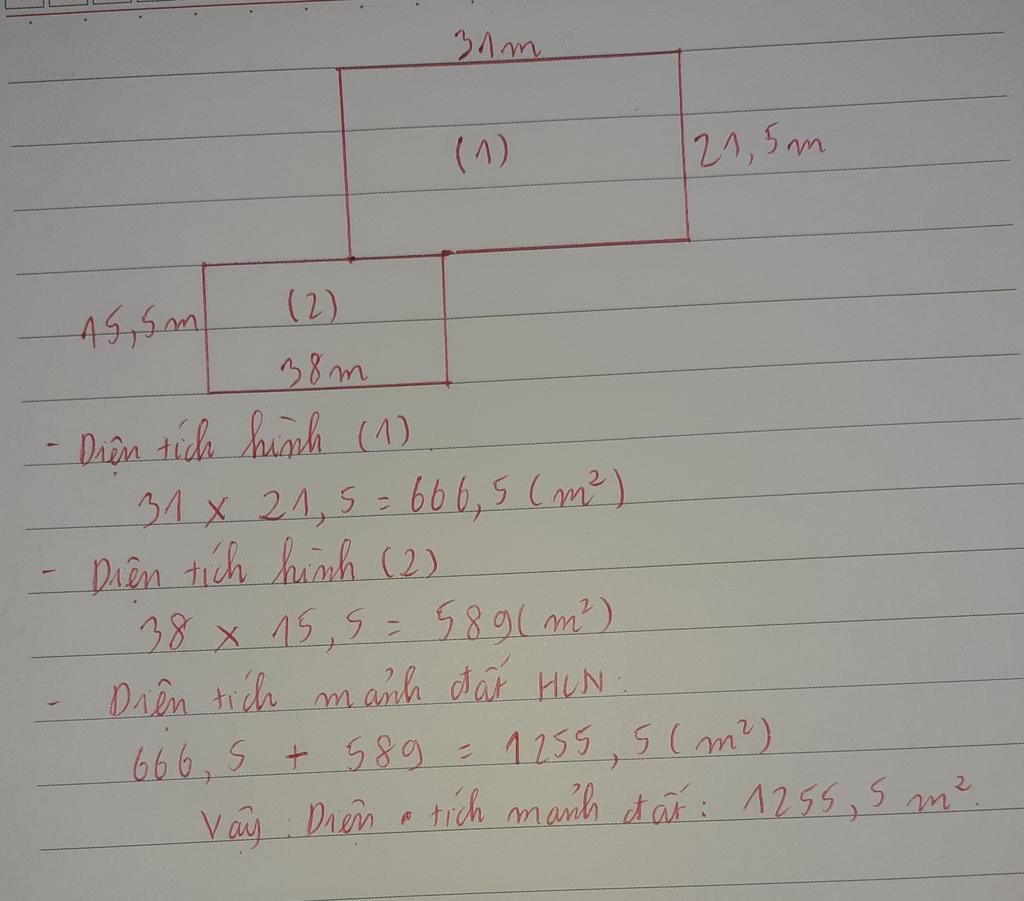 31m
(1)
21,5m
15,5m
(2)
38m
- Diện tích hình (1)
31 x 21,5 = 666,5 (m²)
- Diện tích hình (2)
38 x 15,5 = 589 (m²)
- Diện tích mảnh đất HCN:
666,5 + 589 = 1255,5 (m²)
Vậy: Diện tích mảnh đất: 1255,5 m².